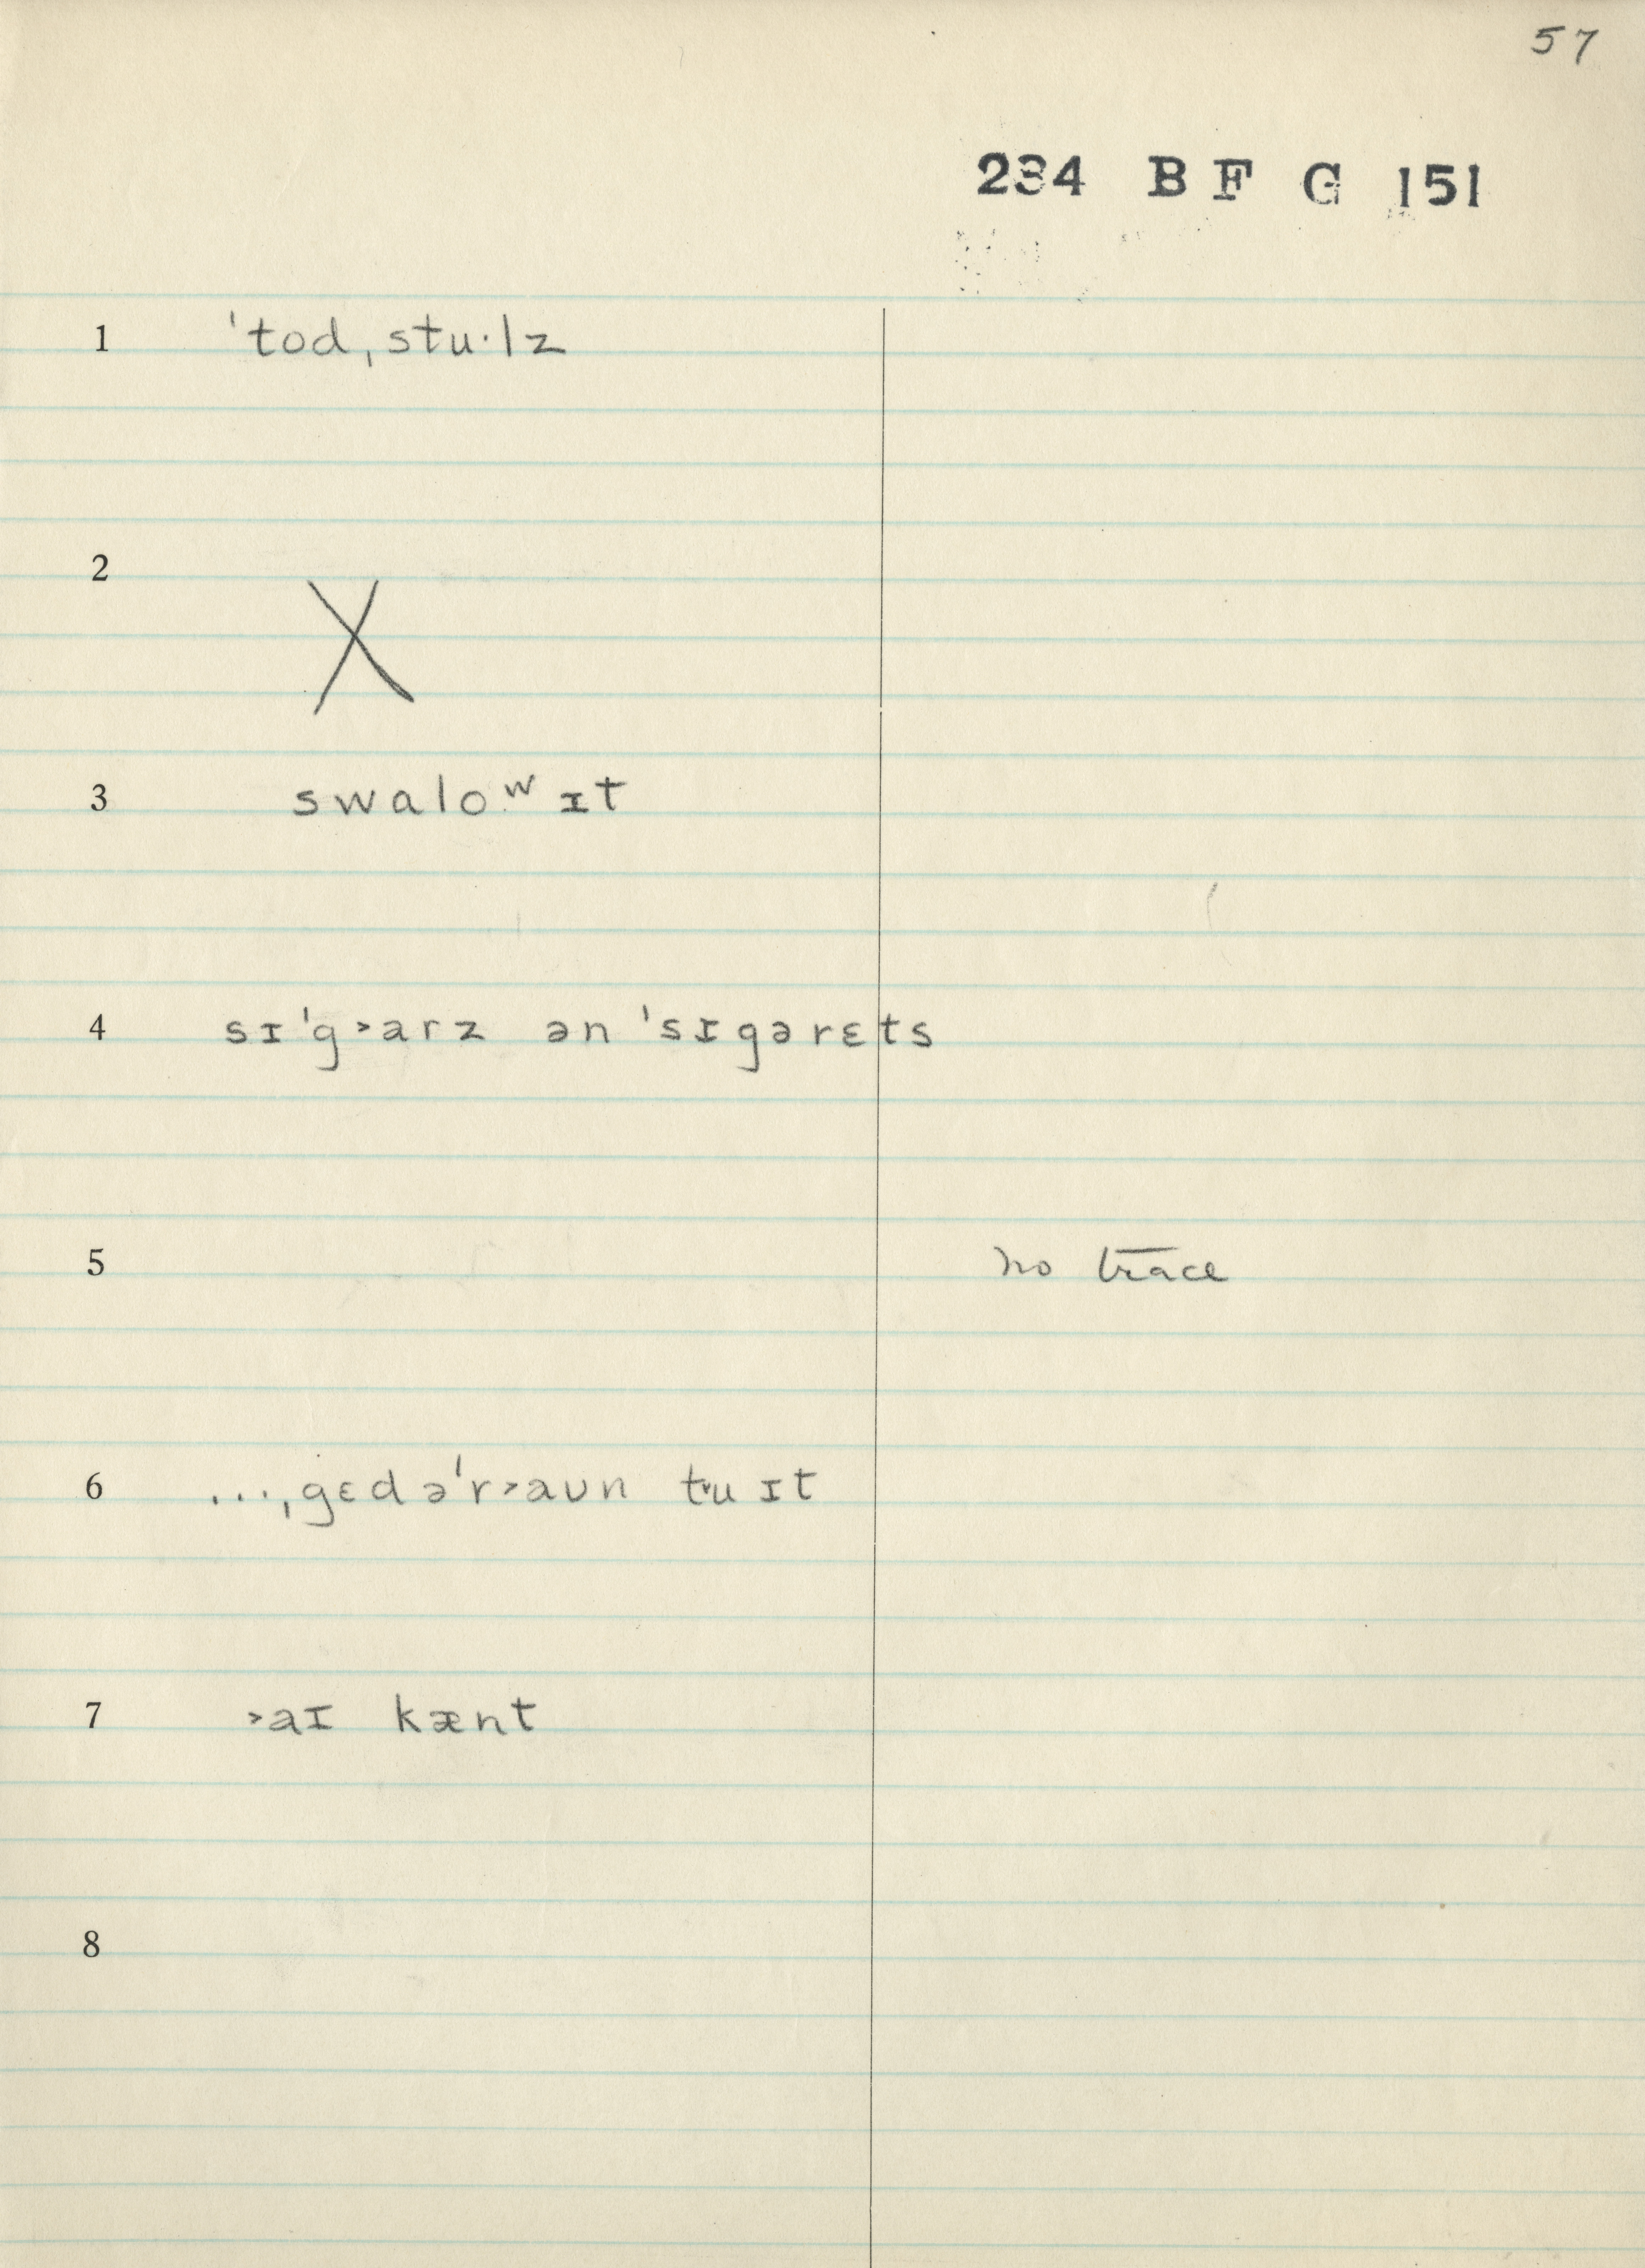 57
234 B F G 151
1 ˈtodˌstu·lz
2 X
3 swaloʷ ɪt
4 sɪˈg˃arz ən ˈsɪgərɛts
5 no trace
6 ...ˌgɛdəˈr˃aʊn tʉ ɪt
7 ˃aɪ kænt
8